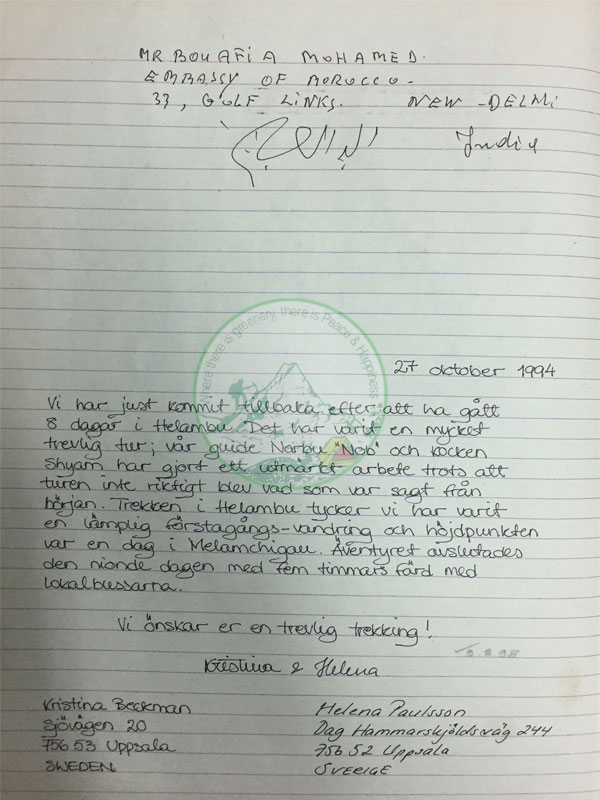 MR BOUAFIA MOHAMED.
EMBASSY OF MOROCCO-
33, GOLF LINKS. NEW-DELHI
India
Where there is greenery, there is Peace & Happiness
27 october 1994
Vi har just kommit tillbaka efter att ha gått
8 dagar i Helambu. Det har varit en mycket
trevlig tur; vår guide Norbu "Nob" och kocken
Shyam har gjort ett utmärkt arbete trots att
turen inte riktigt blev vad som var sagt från
början. Trekken i Helambu tycker vi har varit
en lämplig förstagångs-vandring och höjdpunkten
var en dag i Melamchigau. Äventyret avslutades
den nionde dagen med fem timmars färd med
lokalbussarna.
Vi önskar er en trevlig trekking!
Kristina & Helena
Kristina Beckman
Sjövägen 20
756 53 Uppsala
SWEDEN
Helena Paulsson
Dag Hammarskjöldsväg 244
756 52 Uppsala
SVERIGE